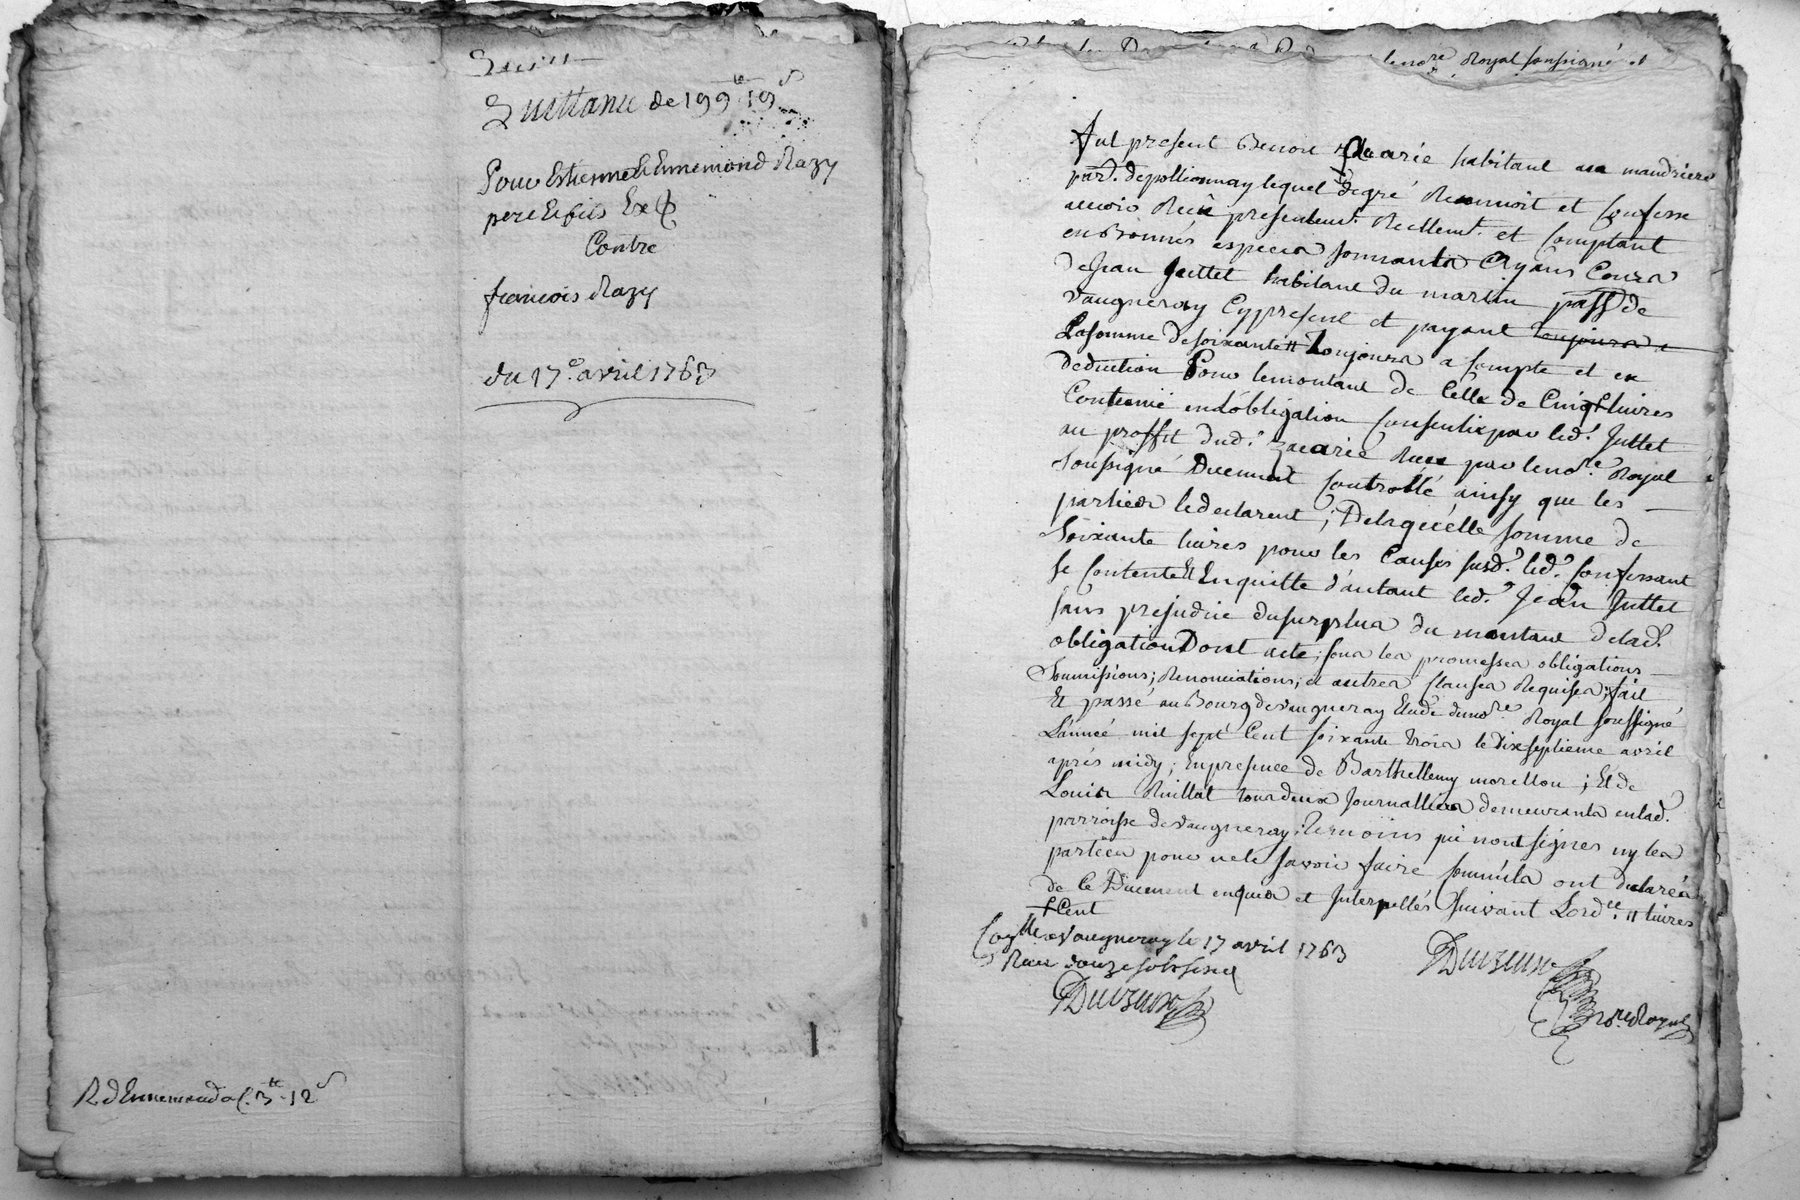 Quittance de 199lt 19s
Pour Estienne & Ennemond Razy
pere & fils Ex
Contre
françois Razy
du 17e. avril 1763
R d'Ennemond 3lt - 12s
no.re Royal soussigné
Fut present Benoit Zacarie habitant au
par. de pollionnay lequel de gré Reconnoit et Confesse
avoir Recû presentemt. Reellemt. et Comptant
en Bonnes especes sonnantes Ayans Cours
de Jean Juttet habitant du martin parss de
Vaugneray Cy present et payant toujours a
La somme de soixante lt toujours a Compte et en
deduction Pour le montant de Celle de Cinq + livres
Contenue en d'obligation Consentie par led. Juttet
au proffit dud. Zacarie Recue par le nore. Royal
soussigné Duement Controllé ainsy que les
parties le declarent ; De laquelle somme de
soixante livres pour les Causes susd. led. Confessant
se Contente Et En quitte d'autant led. Jean Juttet
sans prejudice du surplus du montant de lad.
obligation Dont acte ; sous les promesses obligations
soumissions ; Renonciations ; et autres Clauses Requises ; fait
Et passé au Bourg de Vaugneray Etude du nore. Royal soussigné
L'année mil sept Cent soixante trois le dix septieme avril
aprés midy ; En presence de Barthellemy morellon ; Et de
Louis Ruillat tous deux Journalliers demeurants en lad.
parroisse de Vaugneray ; temoins qui n'ont signés ny les
parties pour ne le savoir faire Comm'ils ont declarés
de Ce Duement enquis et Interpellés suivant L'ordce. lt livres
+ Cent
Conlle a Vaugneray le 17 avril 1763
Recu douze sols six d
nore Royal